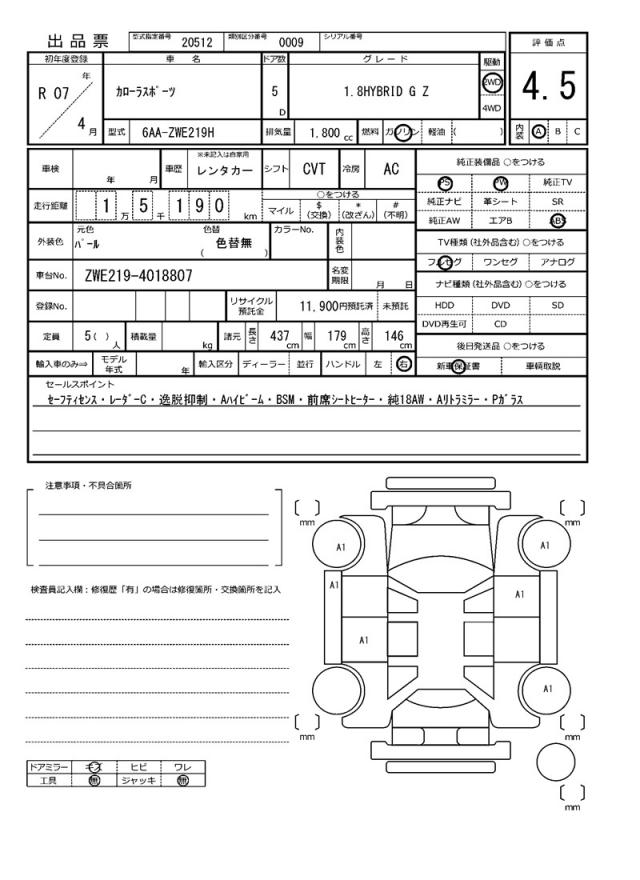 出品票
型式指定番号 20512 類別区分番号 0009 シリアル番号
評価点
4.5
内装 A B C
初年度登録 車名 ドア数 グレード 駆動
R 07 年 4 月
カローラスポーツ 5 D 1.8HYBRID G Z 2WD 4WD
型式 6AA-ZWE219H 排気量 1.800 cc 燃料 ガソリン 軽油 ( )
車検 年 月 車歴 ※未記入は自家用 レンタカー シフト CVT 冷房 AC
走行距離 1 万 5 千 1 9 0 km
○をつける
マイル $(交換) *(改ざん) #(不明)
外装色 元色 パール 色替 色替無 ( ) カラーNo. 内装色
車台No. ZWE219-4018807 名変期限 月 日
登録No. リサイクル預託金 11,900円預託済 未預託
定員 5( ) 人 積載量 kg 諸元 長さ 437 cm 幅 179 cm 高さ 146 cm
輸入車のみ⇒ モデル年式 年 輸入区分 ディーラー 並行 ハンドル 左 右
純正装備品 ○をつける
PS PW 純正TV
純正ナビ 革シート SR
純正AW エアB ABS
TV種類(社外品含む)○をつける
フルセグ ワンセグ アナログ
ナビ種類(社外品含む)○をつける
HDD DVD SD
DVD再生可 CD
後日発送品 ○をつける
新車保証書 車輌取説
セールスポイント
セーフティセンス・レーダーC・逸脱抑制・Aハイビーム・BSM・前席シートヒーター・純18AW・Aリトラミラー・Pガラス
注意事項・不具合箇所
検査員記入欄:修復歴「有」の場合は修復箇所・交換箇所を記入
mm mm
A1 A1
A1 A1
A1
A1
mm mm
mm
ドアミラー キズ ヒビ ワレ
工具 無 ジャッキ 無